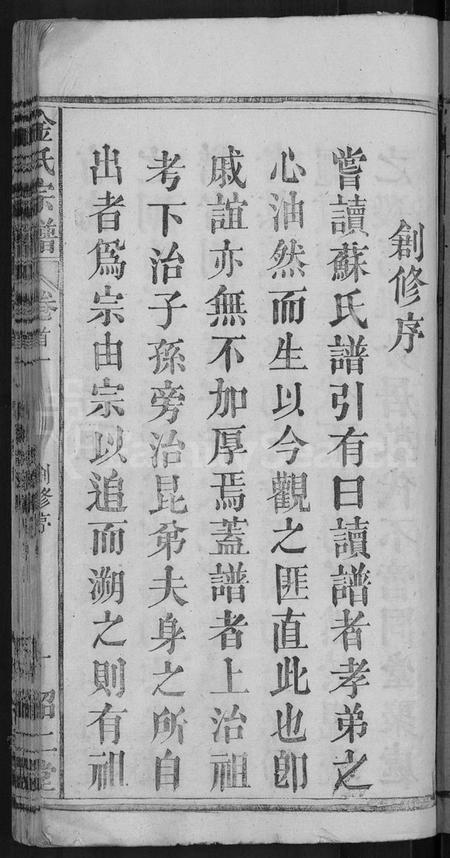 創修序
嘗讀蘇氏譜引有曰讀譜者孝弟之
心油然而生以今觀之匪直此也卽
戚誼亦無不加厚焉蓋譜者上治祖
考下治子孫旁治昆弟夫身之所自
出者爲宗由宗以追而溯之則有祖
金氏宗譜 卷首一 創修序 一 昭仁堂